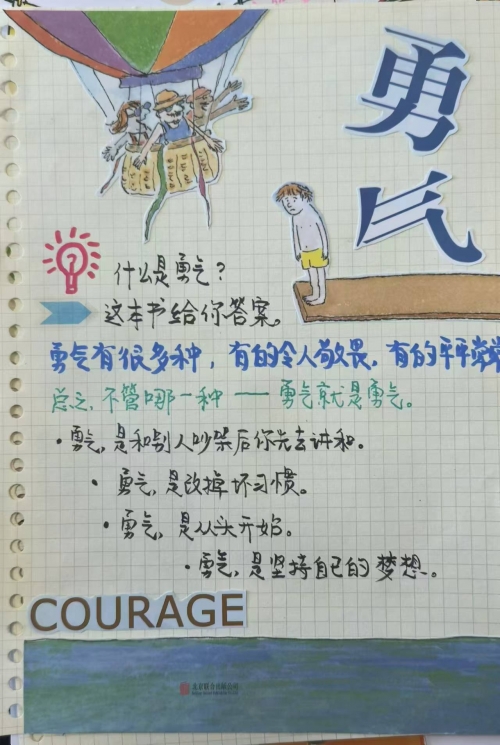 勇气
什么是勇气？
这本书给你答案。
勇气有很多种，有的令人敬畏，有的平平常常
总之，不管哪一种——勇气就是勇气。
·勇气，是和别人吵架后你先去讲和。
·勇气，是改掉坏习惯。
·勇气，是从头开始。
·勇气，是坚持自己的梦想。
COURAGE
北京联合出版公司